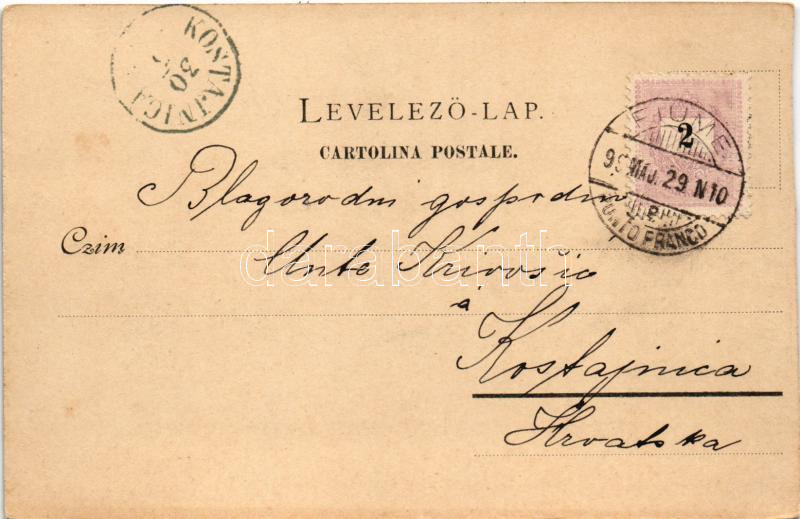 KOSTAJNICA
30
LEVELEZŐ-LAP.
CARTOLINA POSTALE.
2
FIUME
99 MÁJ. 29 N10
PUNTO FRANCO
Blagorodni gospodin
Czim
Ante Krivošić
a
Kostajnica
Hrvatska
darabanth